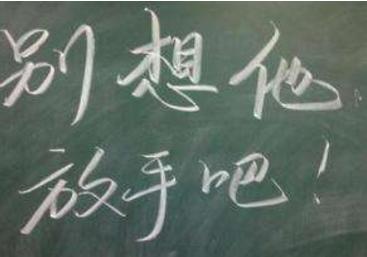 别想他
放手吧！